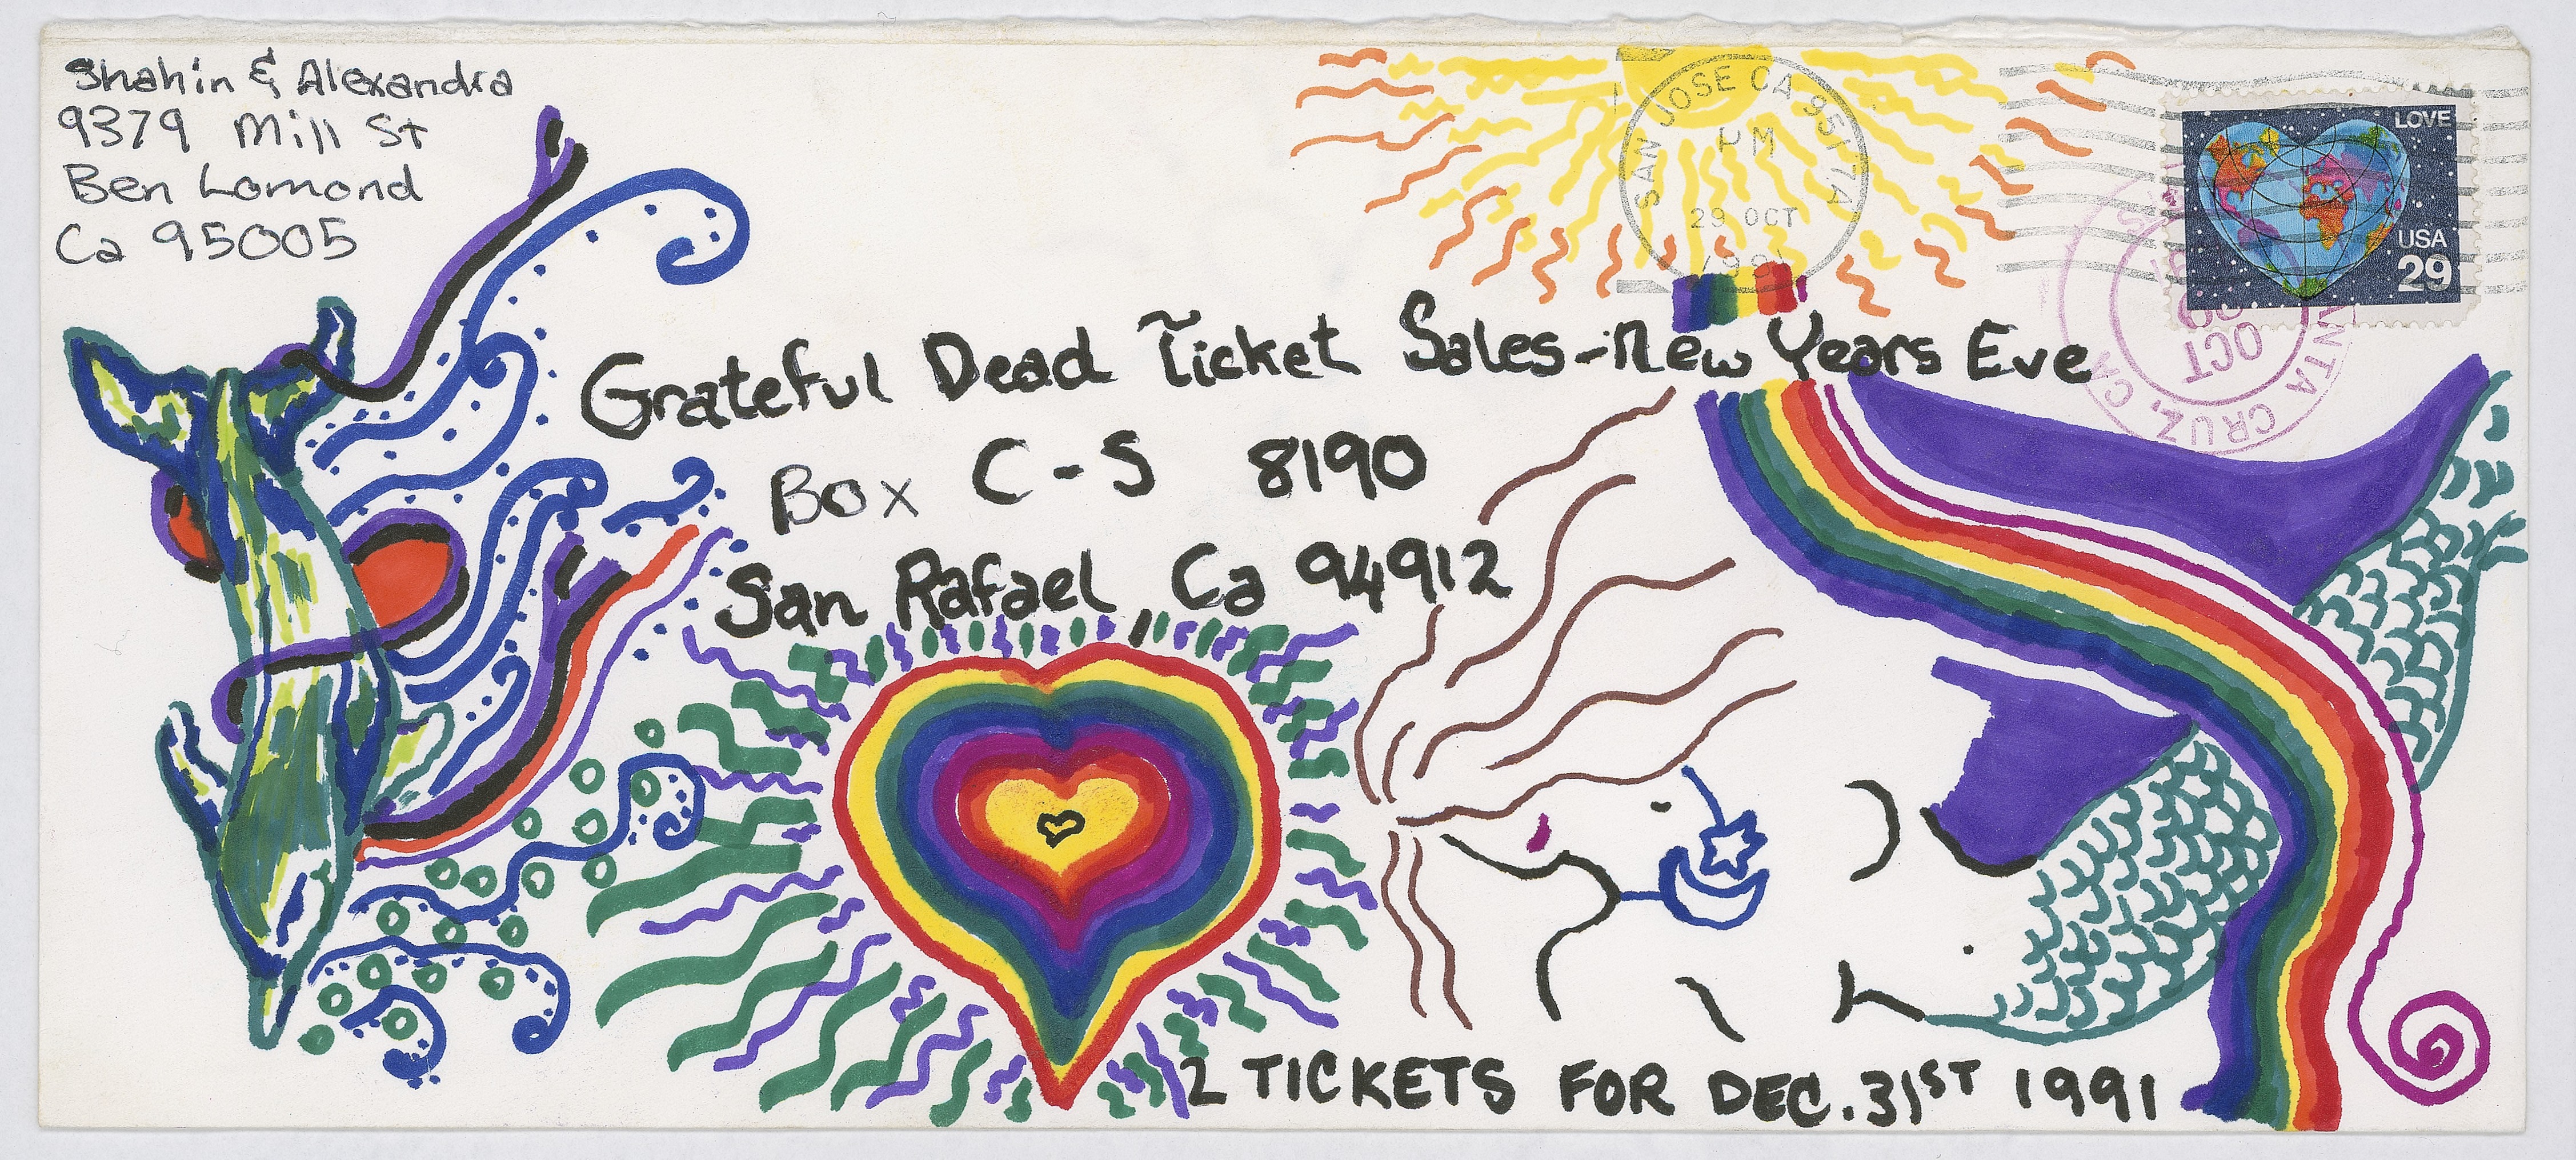 Shahin & Alexandra
9379 Mill St
Ben Lomond
Ca 95005
SAN JOSE CA 951 7A
PM
29 OCT
1991
LOVE
USA
29
SANTA CRUZ, CA
OCT
Grateful Dead Ticket Sales-New Years Eve
Box C-S 8190
San Rafael, Ca 94912
2 TICKETS FOR DEC. 31ST 1991